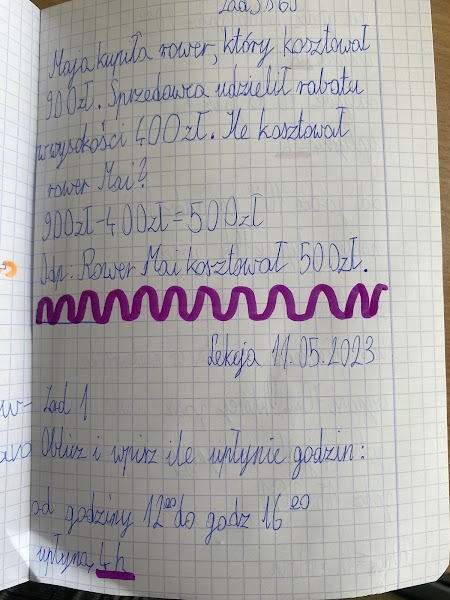 Maja kupiła rower, który kosztował
900zł. Sprzedawca udzielił rabatu
w wysokości 400zł. Ile kosztował
rower Mai?
900zł-400zł=500zł
Odp. Rower Mai kosztował 500zł.
Lekcja 11.05.2023
Zad 1
Oblicz i wpisz ile upłynie godzin:
od godziny 12⁰⁰ do godz 16⁰⁰
upłyną 4h